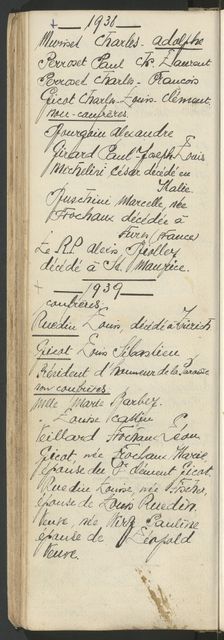 1938
Muriset Charles-Adolphe
Perroset Paul Chs Laurent
Perroset Charles-François
Gicot Charles-Louis-Clément
non-confrères.
Bourgoin Alexandre
Girard Paul-Joseph Louis
Michelini César décédé en
Italie.
Ruschini Marcelle, née
Frochaux décédée à
(France)
Le R.P. Alexis
décédé à St. Maurice.
1939
confrères.
Ruedin Louis, décédé à Zürich
Gicot Louis Sébastien
Président d'honneur de la Paroisse
non confrères.
Mlle Marie Barbey.
- Louise
Veillard Frochaux Léon
Gicot, née Frochaux Marie
épouse de Clément Gicot.
Ruedin Louise, née
épouse de Louis Ruedin
Veuve, née Pauline
épouse de Léopold
Veuve.